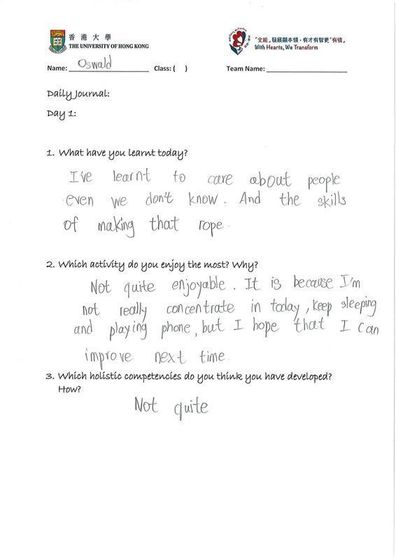 香港大學
THE UNIVERSITY OF HONG KONG
With Hearts, We Transform
Name: Oswald Class: ( ) Team Name:
Daily Journal:
Day 1:
1. What have you learnt today?
I've learnt to care about people
even we don't know. And the skills
of making that rope.
2. Which activity do you enjoy the most? Why?
Not quite enjoyable. It is because I'm
not really concentrate in today, keep sleeping
and playing phone, but I hope that I can
improve next time.
3. Which holistic competencies do you think you have developed?
How?
Not quite